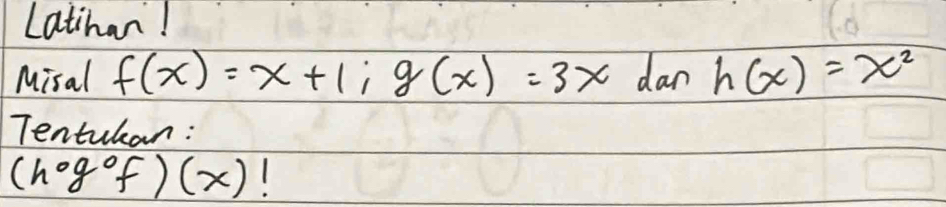 Latihan!
Misal f(x) = x + 1 ; g(x) = 3x dan h(x) = x²
Tentukan:
(h∘g∘f)(x)!